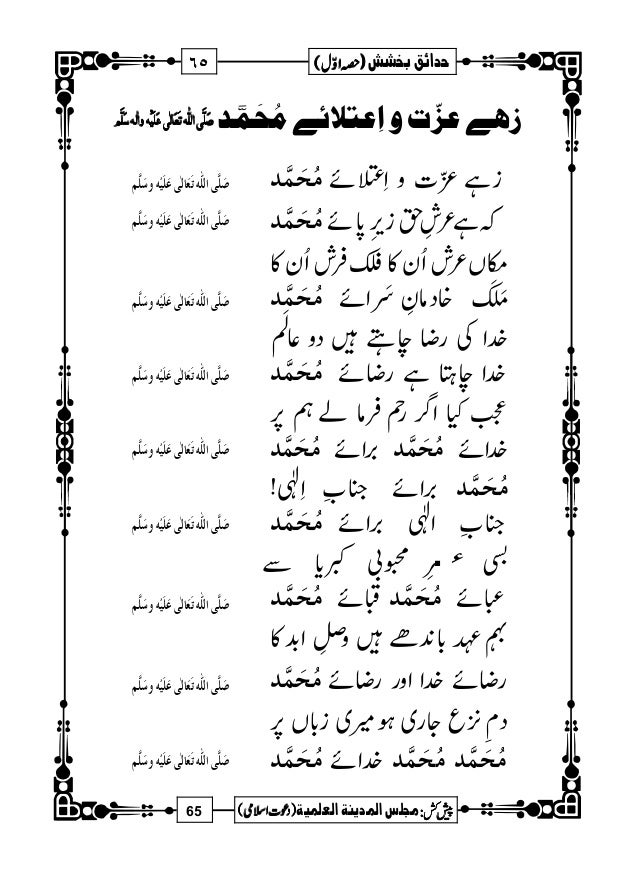 حدائقِ بخشش (حصہ اوّل) ٦٥
زھے عزّت و اِعتلائے مُحَمَّد صَلَّی اللہُ تَعَالٰی عَلَیْہِ واٰلہٖ وسَلَّم
زہے عزّت و اِعتلائے مُحَمَّد صَلَّی اللہُ تَعَالٰی عَلَیْہِ وسَلَّم
کہ ہے عرشِ حق زیرِ پائے مُحَمَّد صَلَّی اللہُ تَعَالٰی عَلَیْہِ وسَلَّم
مکاں عرش اُن کا فلک فرش اُن کا
مَلَک خادمانِ سَرائے مُحَمَّد صَلَّی اللہُ تَعَالٰی عَلَیْہِ وسَلَّم
خدا کی رضا چاہتے ہیں دو عالَم
خدا چاہتا ہے رضائے مُحَمَّد صَلَّی اللہُ تَعَالٰی عَلَیْہِ وسَلَّم
عجب کیا اگر رحم فرما لے ہم پر
خدائے مُحَمَّد برائے مُحَمَّد صَلَّی اللہُ تَعَالٰی عَلَیْہِ وسَلَّم
مُحَمَّد برائے جنابِ اِلٰہی!
جنابِ الٰہی برائے مُحَمَّد صَلَّی اللہُ تَعَالٰی عَلَیْہِ وسَلَّم
بسی عطرِ محبوبیِ کبریا سے
عبائے مُحَمَّد قبائے مُحَمَّد صَلَّی اللہُ تَعَالٰی عَلَیْہِ وسَلَّم
بہم عہد باندھے ہیں وصلِ ابد کا
رضائے خدا اور رضائے مُحَمَّد صَلَّی اللہُ تَعَالٰی عَلَیْہِ وسَلَّم
دمِ نزع جاری ہو میری زباں پر
مُحَمَّد مُحَمَّد خدائے مُحَمَّد صَلَّی اللہُ تَعَالٰی عَلَیْہِ وسَلَّم
پیش کش: مجلس المدینۃ العلمیۃ (دعوتِ اسلامی) 65